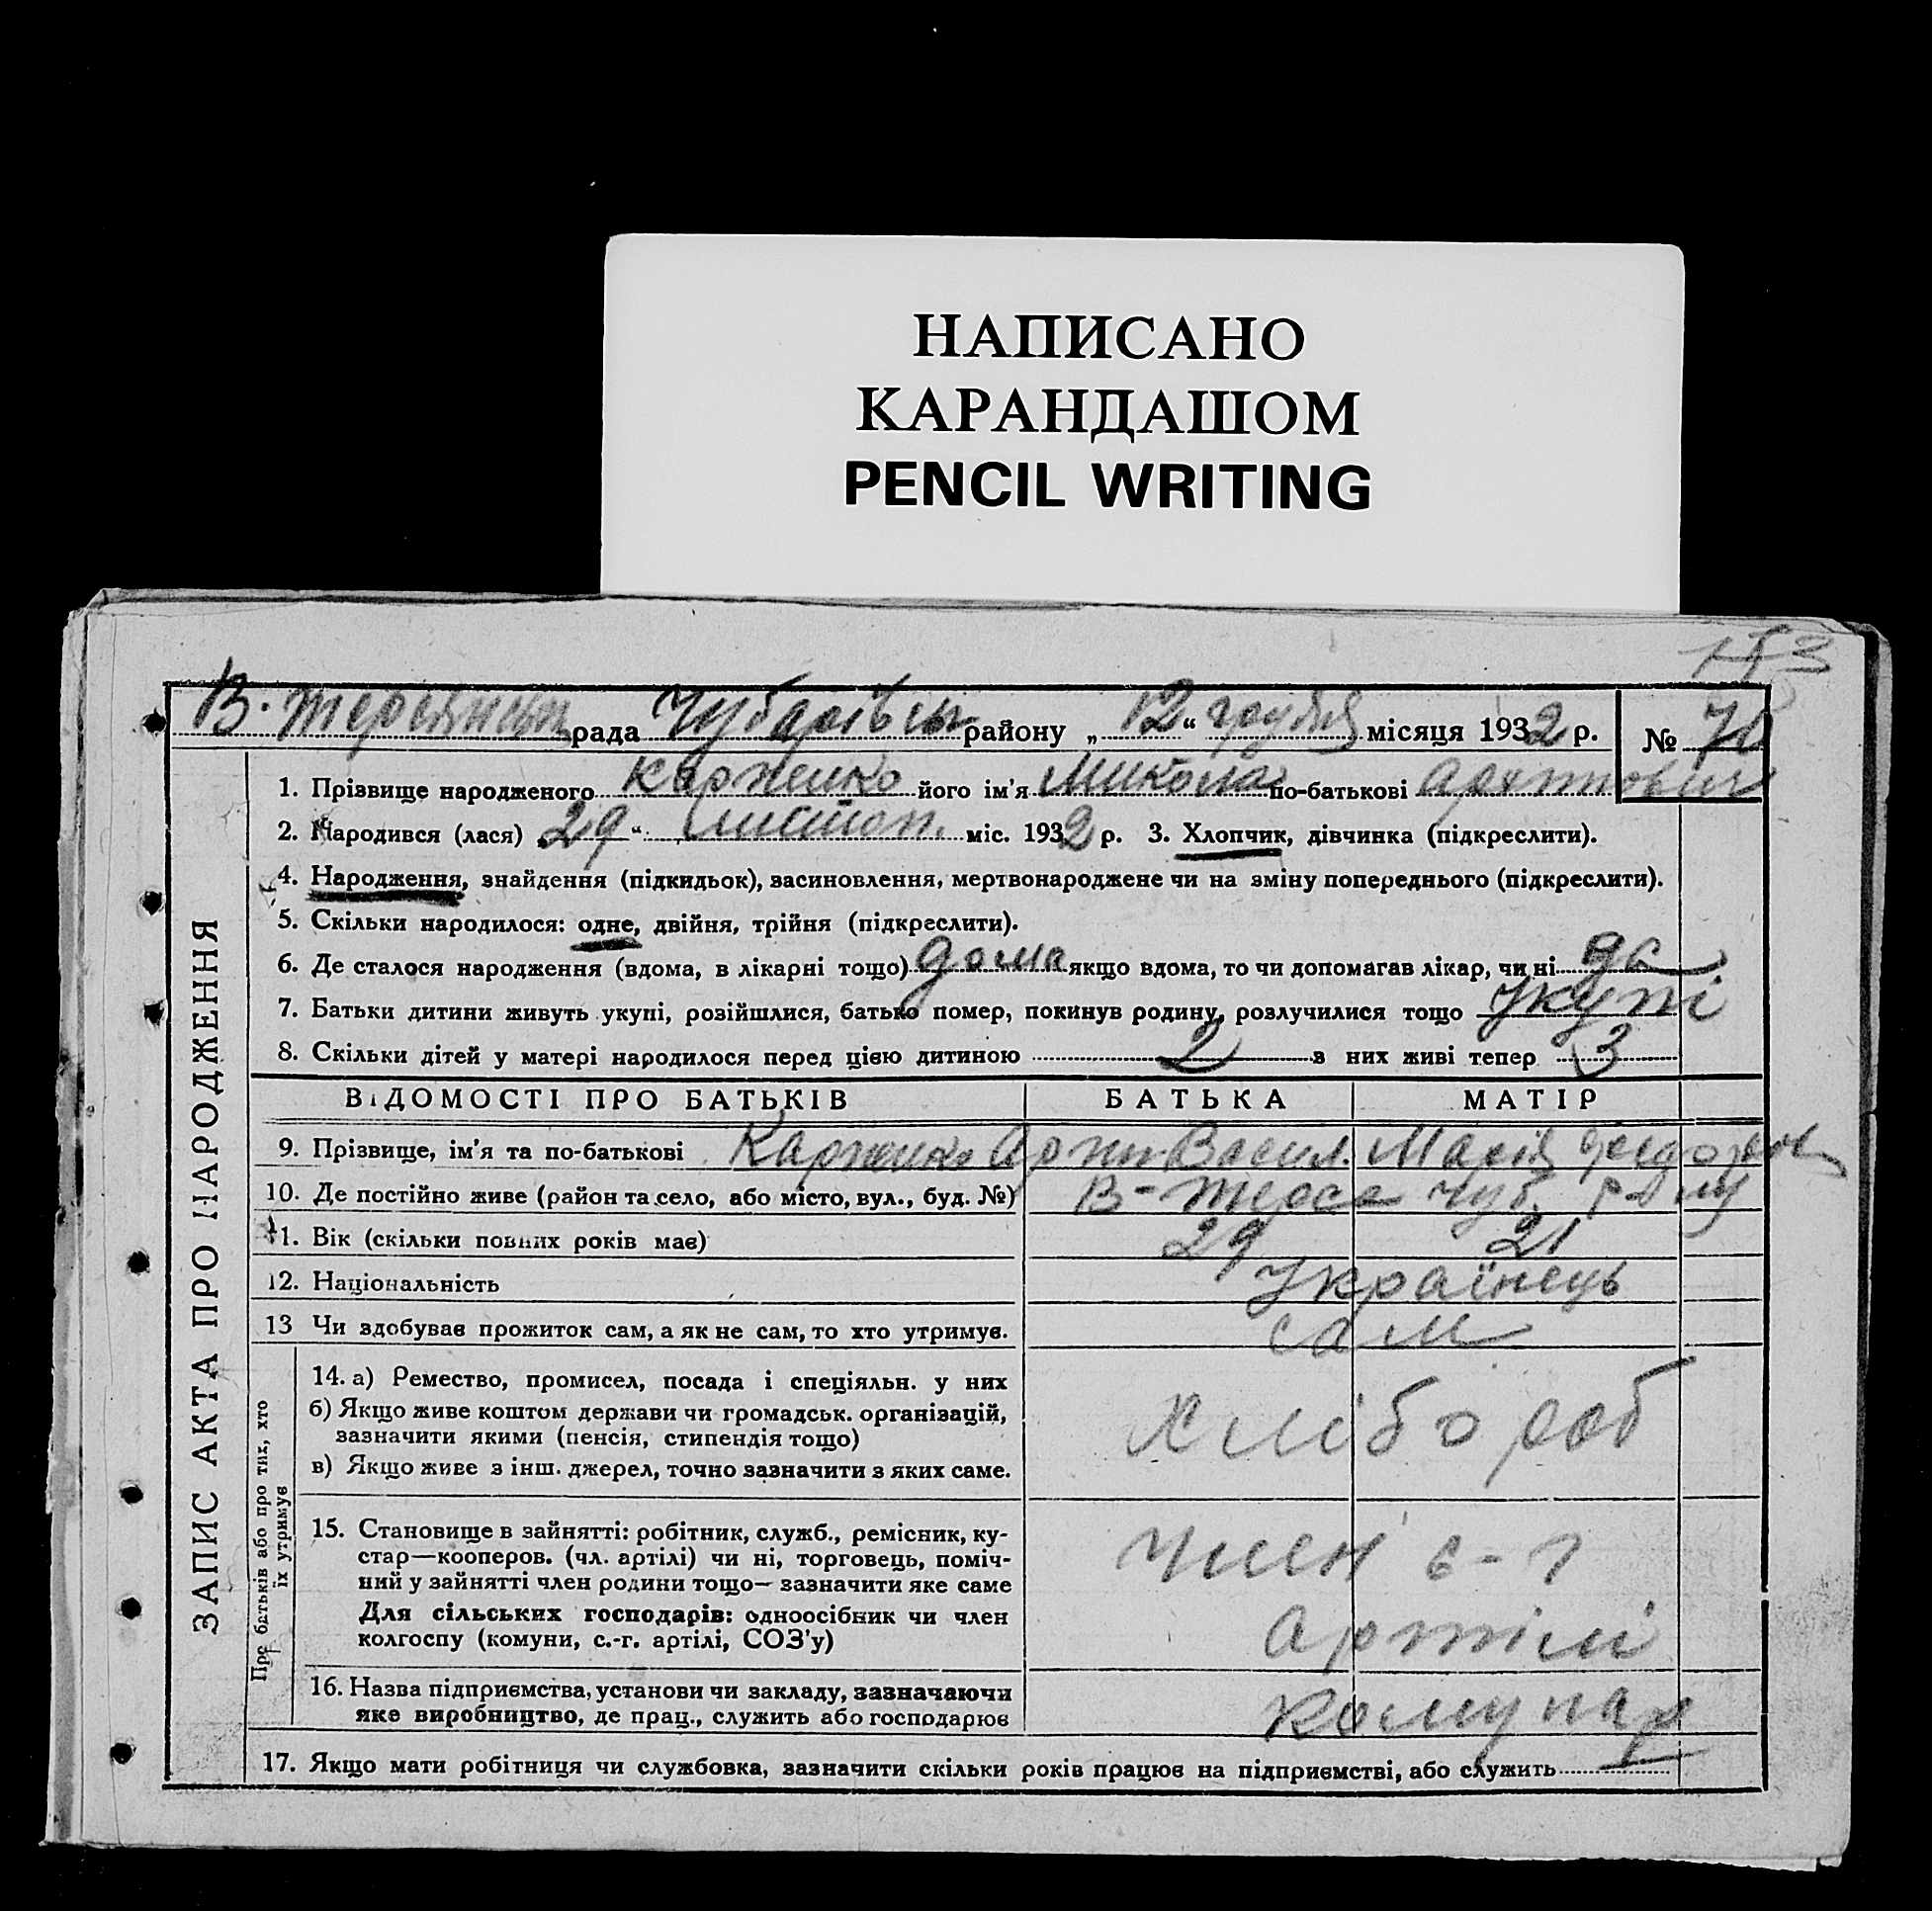 НАПИСАНО
КАРАНДАШОМ
PENCIL WRITING
В. Терсянськ рада Чубарівськ району „12“ грудня місяця 1932 р. № 70
1. Прізвище народженого Карпенко його ім'я Микола по-батькові
2. Народився (лася) 29 “ листоп. міс. 1932 р. 3. Хлопчик, дівчинка (підкреслити).
4. Народження, знайдення (підкидьок), засиновлення, мертвонароджене чи на зміну попереднього (підкреслити).
5. Скільки народилося: одне, двійня, трійня (підкреслити).
6. Де сталося народження (вдома, в лікарні тощо) дома якщо вдома, то чи допомагав лікар, чи ні да
7. Батьки дитини живуть укупі, розійшлися, батько помер, покинув родину, розлучилися тощо укупі
8. Скільки дітей у матері народилося перед цією дитиною 2 з них живі тепер 3
ВІДОМОСТІ ПРО БАТЬКІВ БАТЬКА МАТІР
9. Прізвище, ім'я та по-батькові Карпенко Васил. Марія
10. Де постійно живе (район та село, або місто, вул., буд. №) В-Терса Чуб. р-ну
11. Вік (скільки повних років має) 29 21
12. Національність Українець
13 Чи здобуває прожиток сам, а як не сам, то хто утримує. сам
14. а) Ремество, промисел, посада і спеціяльн. у них
б) Якщо живе коштом держави чи громадськ. організацій,
зазначити якими (пенсія, стипендія тощо)
в) Якщо живе з інш. джерел, точно зазначити з яких саме.
хлібороб
15. Становище в зайнятті: робітник, служб., ремісник, ку-
стар—кооперов. (чл. артілі) чи ні, торговець, поміч-
ний у зайнятті член родини тощо— зазначити яке саме
Для сільських господарів: одноосібник чи член
колгоспу (комуни, с.-г. артілі, СОЗ'у)
член с-г
артілі
16. Назва підприємства, установи чи закладу, зазначаючи
яке виробництво, де прац., служить або господарює
Комунар
17. Якщо мати робітниця чи службовка, зазначити скільки років працює на підприємстві, або служить
ЗАПИС АКТА ПРО НАРОДЖЕННЯ
Про батьків або про тих, хто
їх утримує